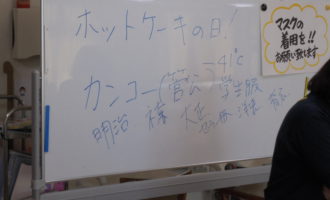 ホットケーキの日!
41℃
カンコー(菅公)学生服
明治 大正
マスクの
着用を!!
お願い致します